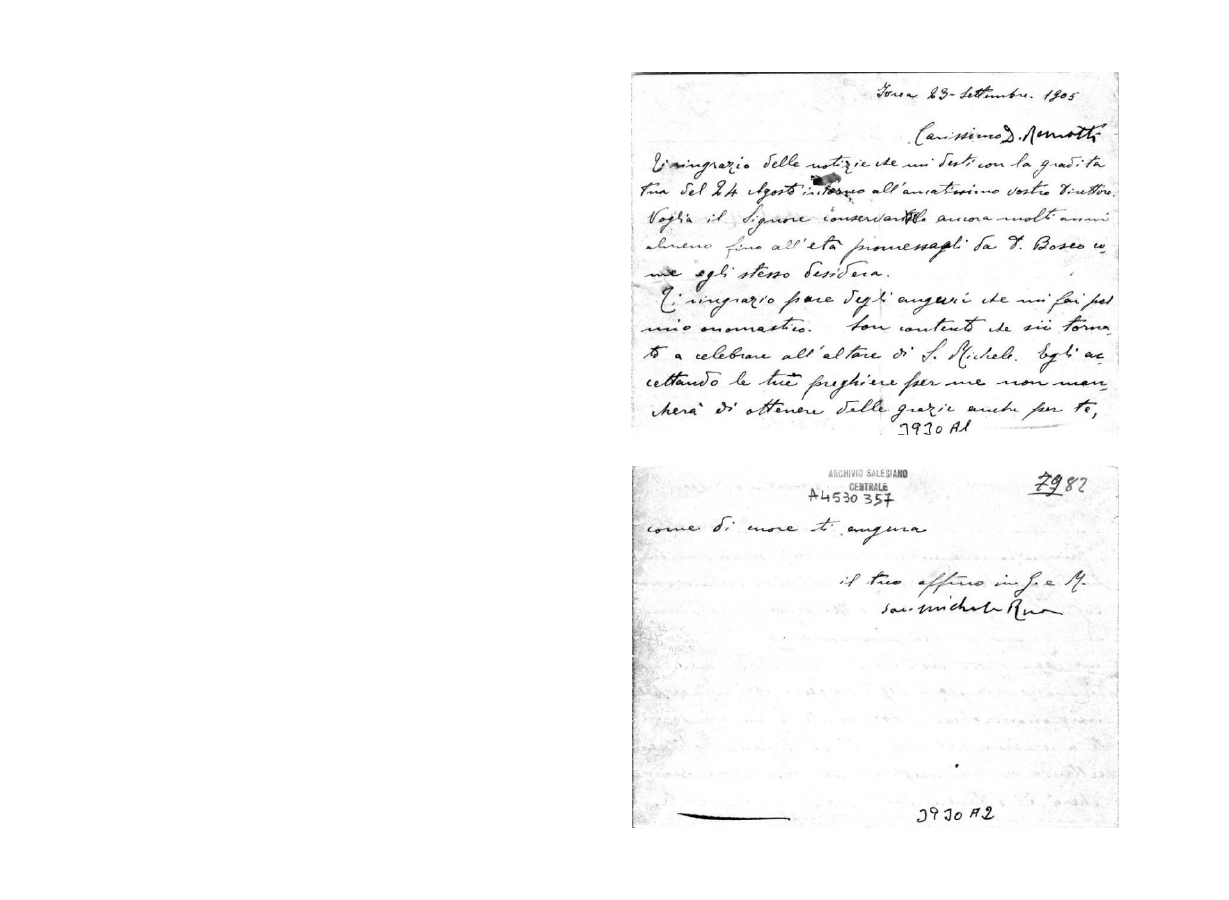 Ivrea 23-Settembre. 1905
Carissimo D. Remotti
Ti ringrazio delle notizie che mi desti con la gradita
tua del 24 Agosto intorno all'amatissimo vostro Direttore.
Voglia il Signore conservarlo ancora molti anni
almeno fino all'età promessagli da D. Bosco co
me egli stesso desidera.
Ti ringrazio pare degli augurî che mi fai pel
mio onomastico. Son contento che sii torna
to a celebrare all'altare di S. Michele. Egli ac
cettando le tue preghiere per me non man
cherà di ottenere delle grazie anche per te,
3930 A1
ARCHIVIO SALESIANO
CENTRALE
A4530357
7982
come di cuore ti augura
il tuo affmo in G. e M.
Sac. Michele Rua
3930 A2